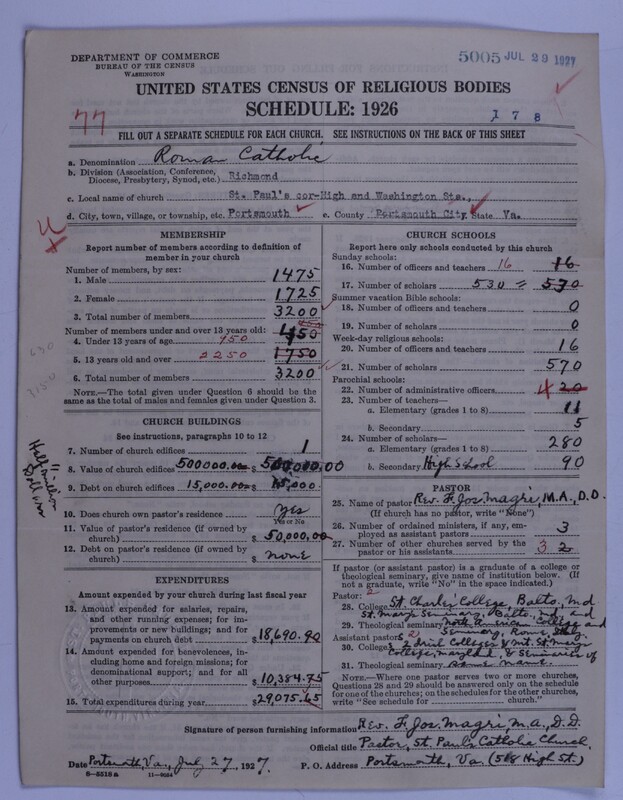 DEPARTMENT OF COMMERCE
BUREAU OF THE CENSUS
WASHINGTON
5005 JUL 29 1927
UNITED STATES CENSUS OF RELIGIOUS BODIES
SCHEDULE: 1926
77
178
FILL OUT A SEPARATE SCHEDULE FOR EACH CHURCH. SEE INSTRUCTIONS ON THE BACK OF THIS SHEET
a. Denomination Roman Catholic
b. Division (Association, Conference, Diocese, Presbytery, Synod, etc.) Richmond
c. Local name of church St. Paul's cor-High and Washington Sts.,
d. City, town, village, or township, etc. Portsmouth e. County Portsmouth City State Va.
MEMBERSHIP
Report number of members according to definition of
member in your church
Number of members, by sex:
1. Male 1475
2. Female 1725
3. Total number of members 3200
Number of members under and over 13 years old:
4. Under 13 years of age 950 1450
5. 13 years old and over 2250 1750
6. Total number of members 3200
NOTE.—The total given under Question 6 should be the
same as the total of males and females given under Question 3.
630
3150
CHURCH BUILDINGS
See instructions, paragraphs 10 to 12
7. Number of church edifices 1
8. Value of church edifices 500000.00 $ 500,000.00
9. Debt on church edifices 15,000.00 $ 15,000
Half million Dollars
10. Does church own pastor's residence? Yes
Yes or No
11. Value of pastor's residence (if owned by
church) $ 50,000.00
12. Debt on pastor's residence (if owned by
church) $ none
EXPENDITURES
Amount expended by your church during last fiscal year
13. Amount expended for salaries, repairs,
and other running expenses; for im-
provements or new buildings; and for
payments on church debt $ 18,690.90
14. Amount expended for benevolences,
including home and foreign missions; for
denominational support; and for all
other purposes $ 10,384.75
15. Total expenditures during year $ 29075.65
CHURCH SCHOOLS
Report here only schools conducted by this church
Sunday schools:
16. Number of officers and teachers 16 16
17. Number of scholars 530 = 530
Summer vacation Bible schools:
18. Number of officers and teachers 0
19. Number of scholars 0
Week-day religious schools:
20. Number of officers and teachers 16
21. Number of scholars 570
Parochial schools:
22. Number of administrative officers 4 20
23. Number of teachers—
a. Elementary (grades 1 to 8) 11
b. Secondary 5
24. Number of scholars—
a. Elementary (grades 1 to 8) 280
b. Secondary High School 90
PASTOR
25. Name of pastor Rev. F. Jos. Magri, M.A., D.D.
(If church has no pastor, write "None")
26. Number of ordained ministers, if any, em-
ployed as assistant pastors 3
27. Number of other churches served by the
pastor or his assistants 3 2
If pastor (or assistant pastor) is a graduate of a college or
theological seminary, give name of institution below. (If
not a graduate, write "No" in the space indicated.)
Pastor: 2
28. College St. Charles' College, Balto, Md
St. Mary's Seminary, Balto, Md. and
29. Theological seminary North American College and
Seminary, Rome, Italy.
Assistant pastors 2
30. College Colleges Mt. St. Mary
College, Maryland, & Seminaries of
31. Theological seminary same name.
NOTE.—Where one pastor serves two or more churches,
Questions 28 and 29 should be answered only on the schedule
for one of the churches; on the schedules for the other churches,
write "See schedule for church."
Signature of person furnishing information Rev. F. Jos. Magri, M.A., D.D.
Official title Pastor, St. Paul's Catholic Church,
Date Portsmouth, Va., July 27, 1927. P. O. Address Portsmouth, Va (518 High St.)
8—5518a 11—9034